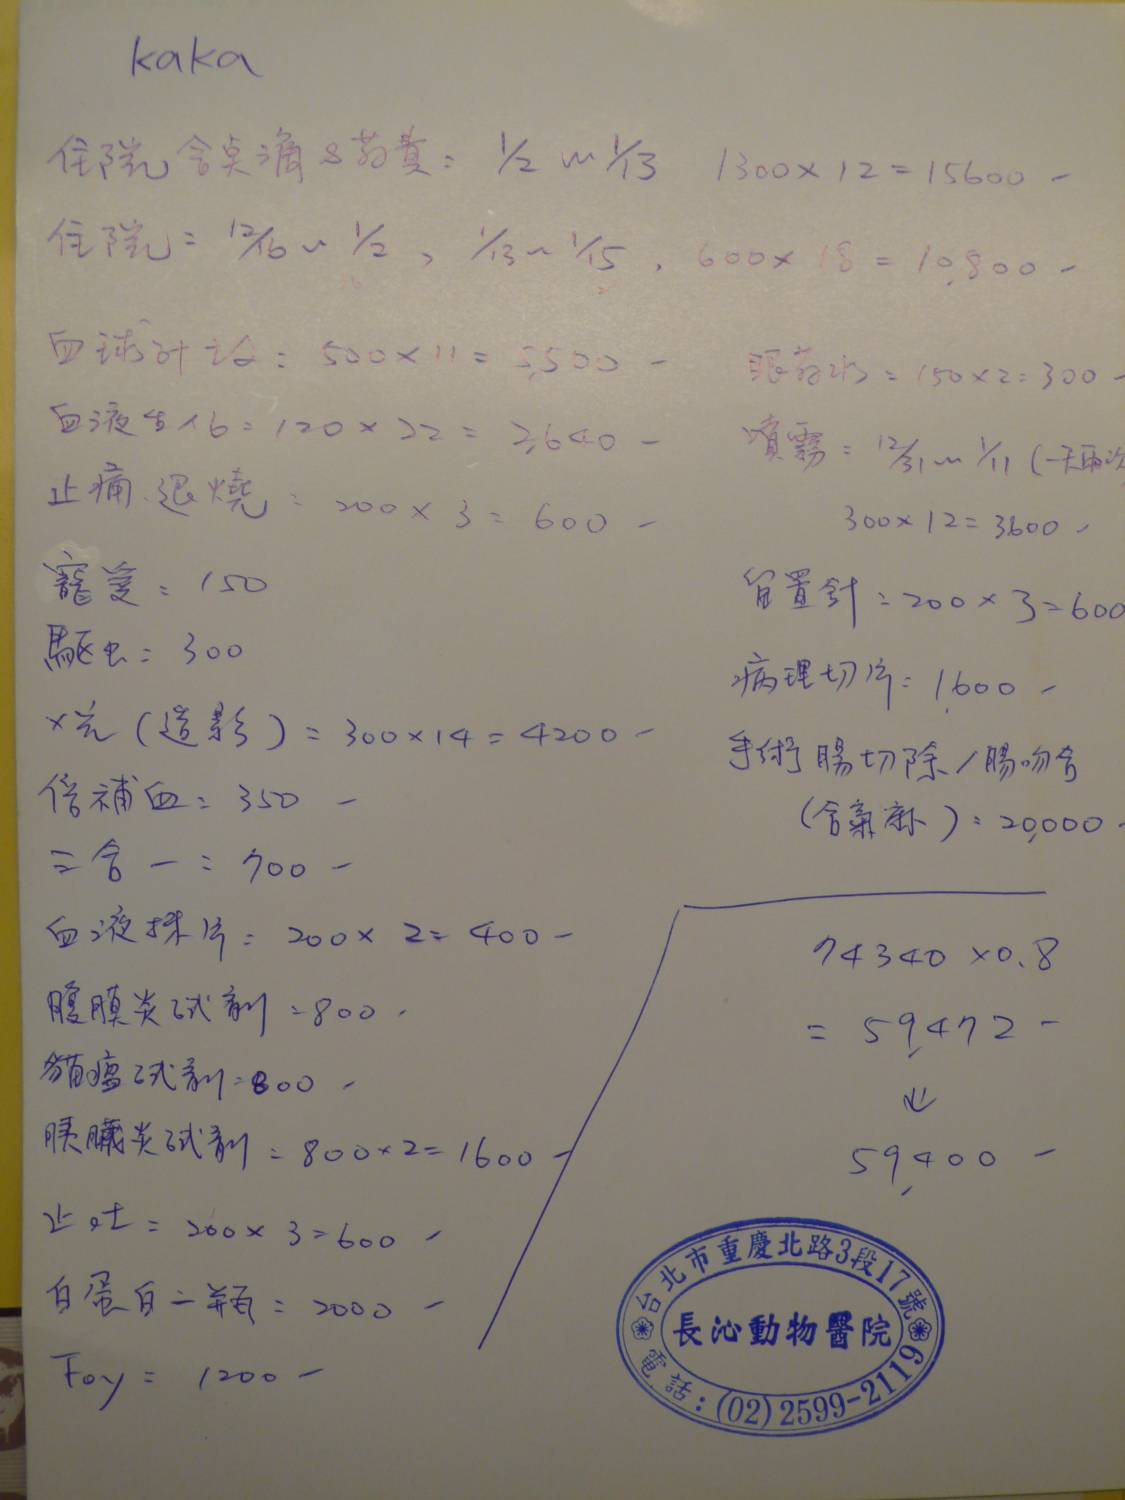 kaka
住院含点滴&药費: 1/2~1/13 1300×12=15600-
住院= 12/16~1/2, 1/13~1/15, 600×18=10,800-
血球計数: 500×11=5,500-
血液生化=120×22=2,640-
止痛.退燒=200×3=600-
寵愛:150
驅虫=300
X光(造影)=300×14=4200-
倍補血:350-
三合一:700-
血液抹片=200×2=400-
腹膜炎試剤=800-
猫瘟試剤=800-
胰臟炎試剤=800×2=1600-
止吐=200×3=600-
白蛋白二瓶=2000-
Foy=1200-
眼药水=150×2=300-
噴霧= 12/31~1/11(一天兩次
300×12=3600-
留置針=200×3=600
病理切片:1,600-
手術腸切除/腸吻合
(含氣麻)=20,000-
74340×0.8
=59,472-
↓
59,400-
台北市重慶北路3段17號
長沁動物醫院
電話:(02)2599-2119